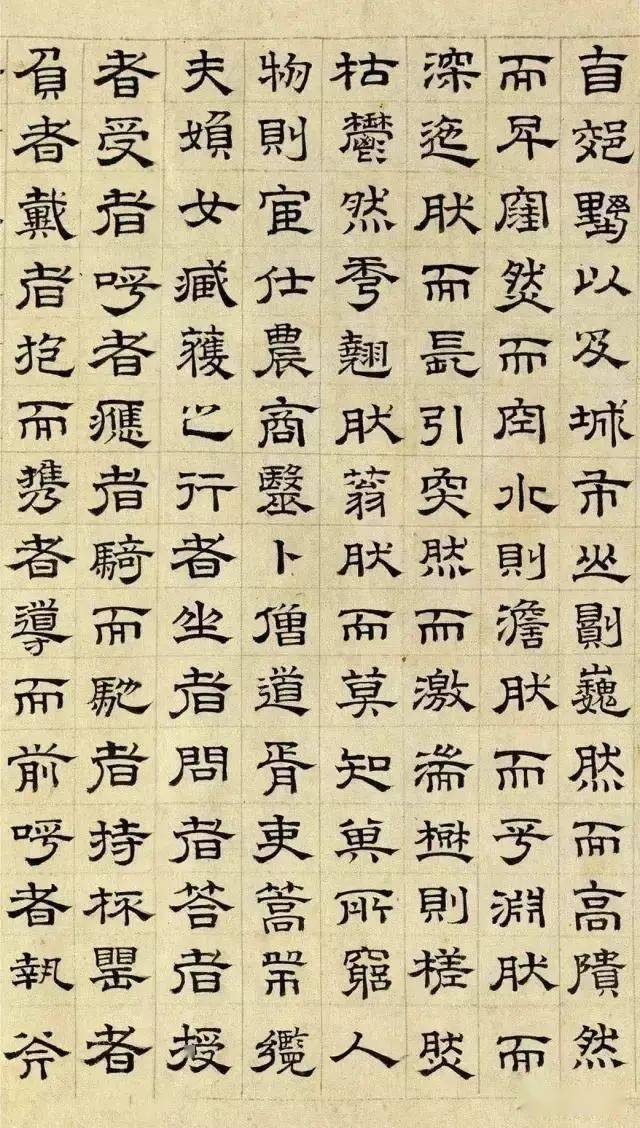 自郊野以及城市山則巍然而高隤然
而卑窪然而空水則澹然而平淵然而
深迤然而長引突然而激湍樹則槎然
枯鬱然秀翹然蓊然而莫知其所窮人
物則宦仕農商醫卜僧道胥吏篙師纜
夫婦女臧獲之行者坐者問者答者授
者受者呼者應者騎而馳者持杯罌者
負者戴者抱而攜者導而前呼者執斧